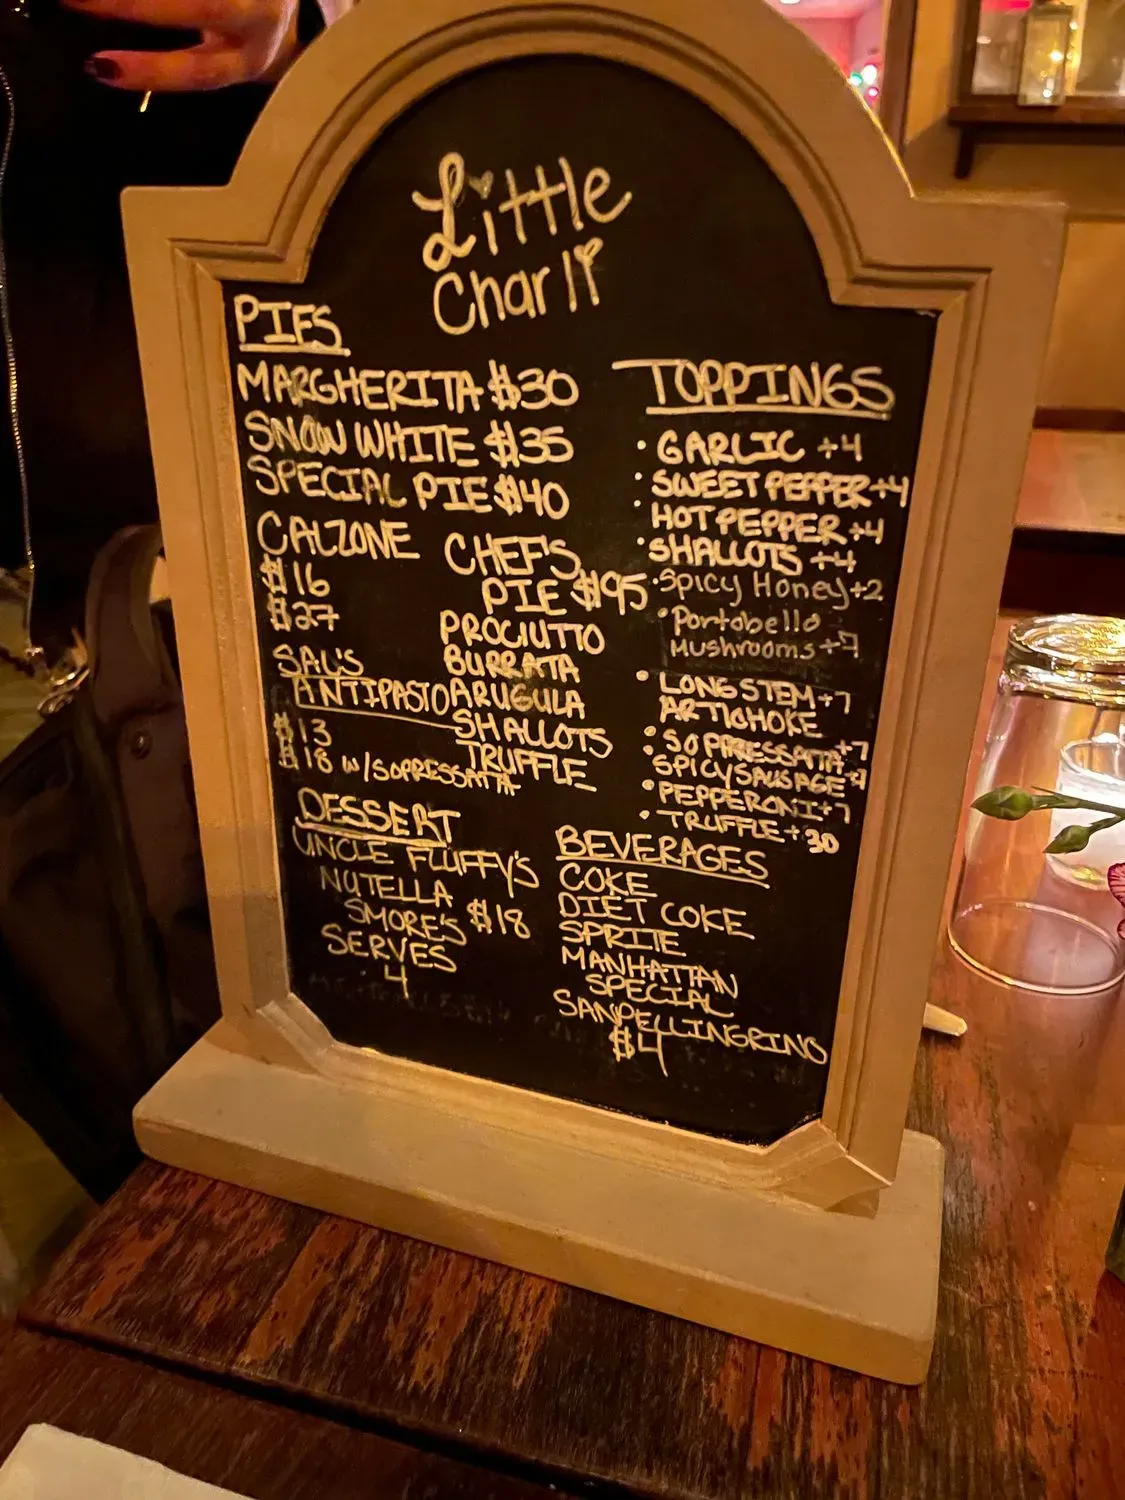 Little
Charli
PIES
MARGHERITA $30
SNOW WHITE $35
SPECIAL PIE $40
CALZONE
$16
$27
CHEF'S
PIE $95
PROCIUTTO
BURRATA
ARUGULA
SHALLOTS
TRUFFLE
SAL'S
ANTIPASTO
$13
$18 w/SOPRESSATTA
DESSERT
UNCLE FLUFFY'S
NUTELLA
SMORE'S $18
SERVES
4
TOPPINGS
• GARLIC +4
• SWEET PEPPER +4
• HOT PEPPER +4
• SHALLOTS +4
• Spicy Honey +2
• Portobello
Mushrooms +7
• LONG STEM +7
ARTICHOKE
• SOPPRESSATTA +7
• SPICY SAUSAGE +7
• PEPPERONI +7
• TRUFFLE +30
BEVERAGES
COKE
DIET COKE
SPRITE
MANHATTAN
SPECIAL
SANPELLINGRINO
$4